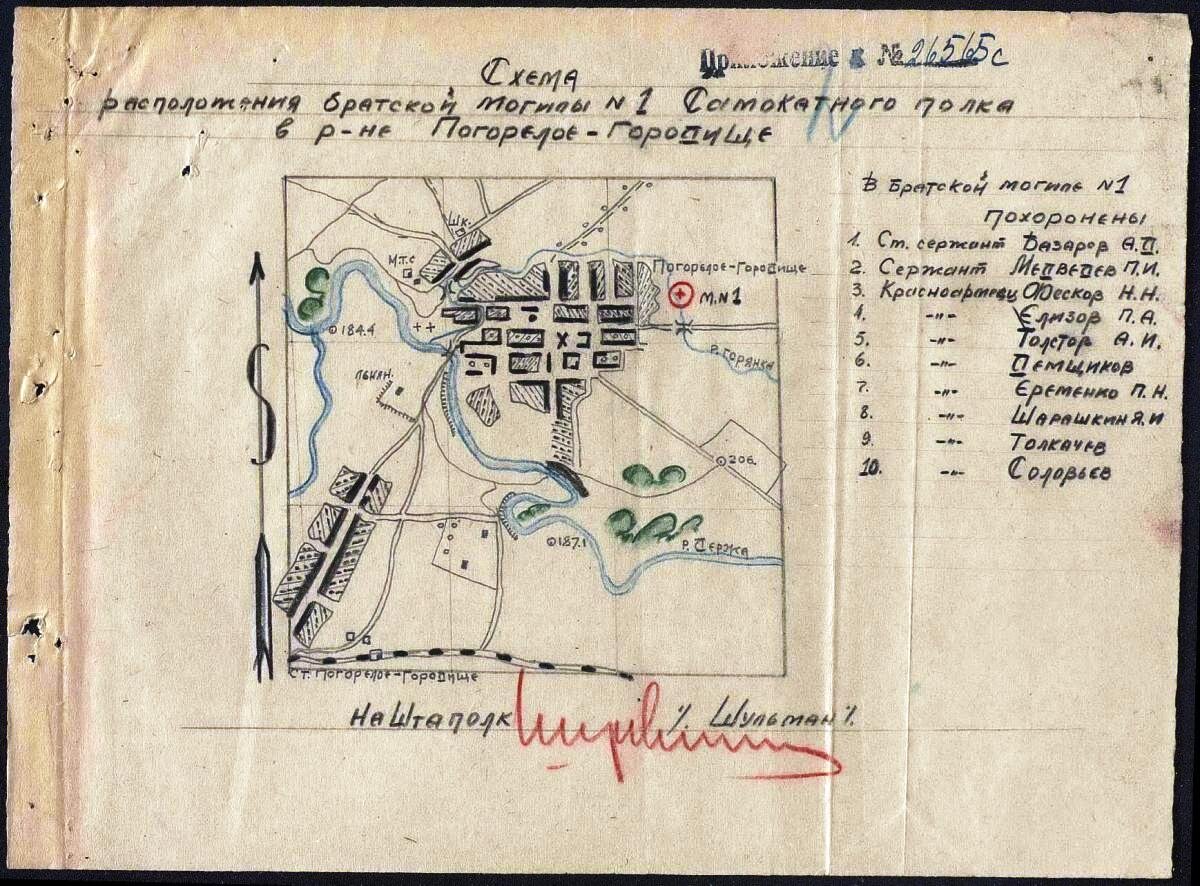 Приложение к № 26565с
Схема
расположения братской могилы №1 Самокатного полка
в р-не Погорелое-Городище
В Братской могиле №1
похоронены
1. Ст. сержант Базаров А.Д.
2. Сержант Медведев П.И.
3. Красноармеец Фесков Н.Н.
4. -"- Елизов П.А.
5. -"- Толстов А.И.
6. -"- Демщиков
7. -"- Еременко П.Н.
8. -"- Шарашкин Я.И
9. -"- Толкачев
10. -"- Соловьев
Шк.
М.Т.С
Погорелое-Городище
М.N1
184.4
р. Горянка
льнян.
206.
187.1
р. Держа
Ст. Погорелое-Городище
НаШтаполк /. Шульман /.